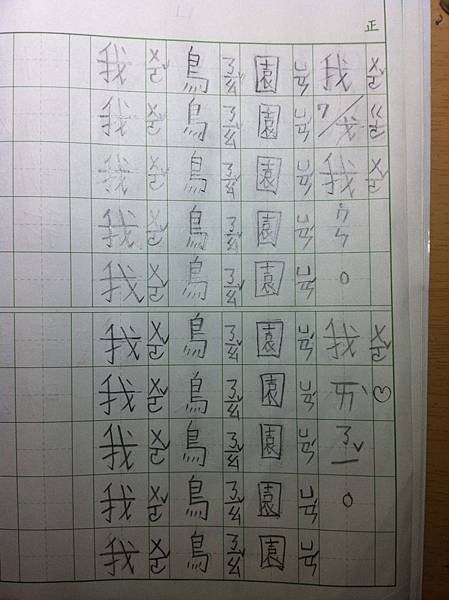 正
我ㄨㄛˇ
我ㄨㄛˇ
。
我ㄨㄛˇ
ㄞˋ♡
ㄋㄧˇ
。
園ㄩㄢˊ園ㄩㄢˊ園ㄩㄢˊ園ㄩㄢˊ園ㄩㄢˊ園ㄩㄢˊ園ㄩㄢˊ園ㄩㄢˊ園ㄩㄢˊ園ㄩㄢˊ
鳥ㄋㄧㄠˇ鳥ㄋㄧㄠˇ鳥ㄋㄧㄠˇ鳥ㄋㄧㄠˇ鳥ㄋㄧㄠˇ鳥ㄋㄧㄠˇ鳥ㄋㄧㄠˇ鳥ㄋㄧㄠˇ鳥ㄋㄧㄠˇ鳥ㄋㄧㄠˇ
我ㄨㄛˇ我ㄨㄛˇ我ㄨㄛˇ我ㄨㄛˇ我ㄨㄛˇ我ㄨㄛˇ我ㄨㄛˇ我ㄨㄛˇ我ㄨㄛˇ我ㄨㄛˇ